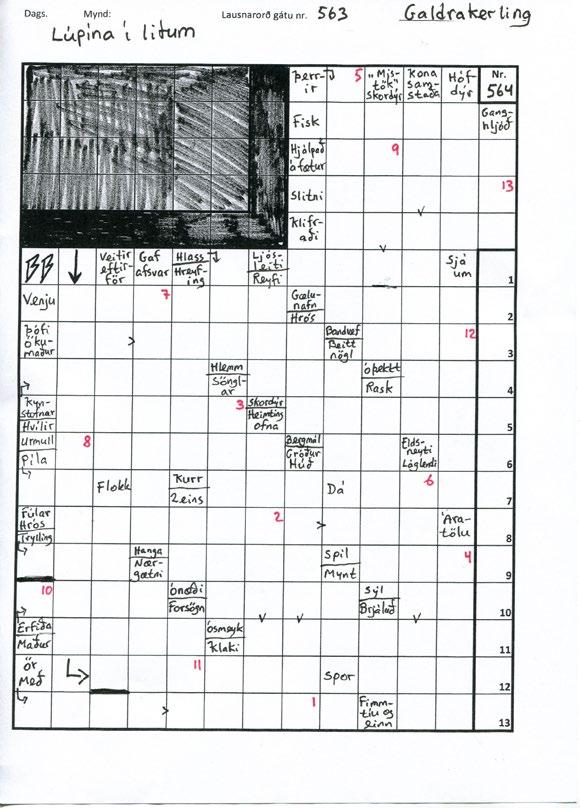 Dags. Mynd: Lausnarorð gátu nr. 563 Galdrakerling
Lúpína í litum
Þerr-
ir
5
„Mis-
tök"
Skordýr
Kona
Samstaða
Hóf-
dýr
Nr.
564
Fisk
Gang-
hljóð
Hjálpað
á fætur
9
Slitni
13
Klifr-
aði
BB
Veitir
eftir-
för
Gaf
afsvar
Hlass
Hreyf-
ing
Ljós-
leiti
Reyfi
Sjá
um
1
Venju
7
Gælu-
nafn
Hrós
2
Þófi
Öku-
maður
Bandvef
Beitt
nögl
12
3
Hlemm
Söngl-
ar
Óþekkt
Rask
4
Kyn-
stofnar
Hvílir
3
Skordýr
Heimting
Ofna
5
Urmull
Píla
8
Bergmál
Gróður
Húð
Elds-
neyti
Láglendi
6
Flokk
Kurr
2 eins
Dá
6
7
Fúlar
Hrós
Trylling
2
Ára-
tölu
8
Hanga
Nær-
gætni
Spil
Mynt
4
9
10
Ónæði
Forsögn
Sýl
Brjáluð
10
Erfiða
Maður
Ósmeyk
Klaki
11
Ör
Með
11
Spor
12
1
Fimm-
tíu og
einn
13